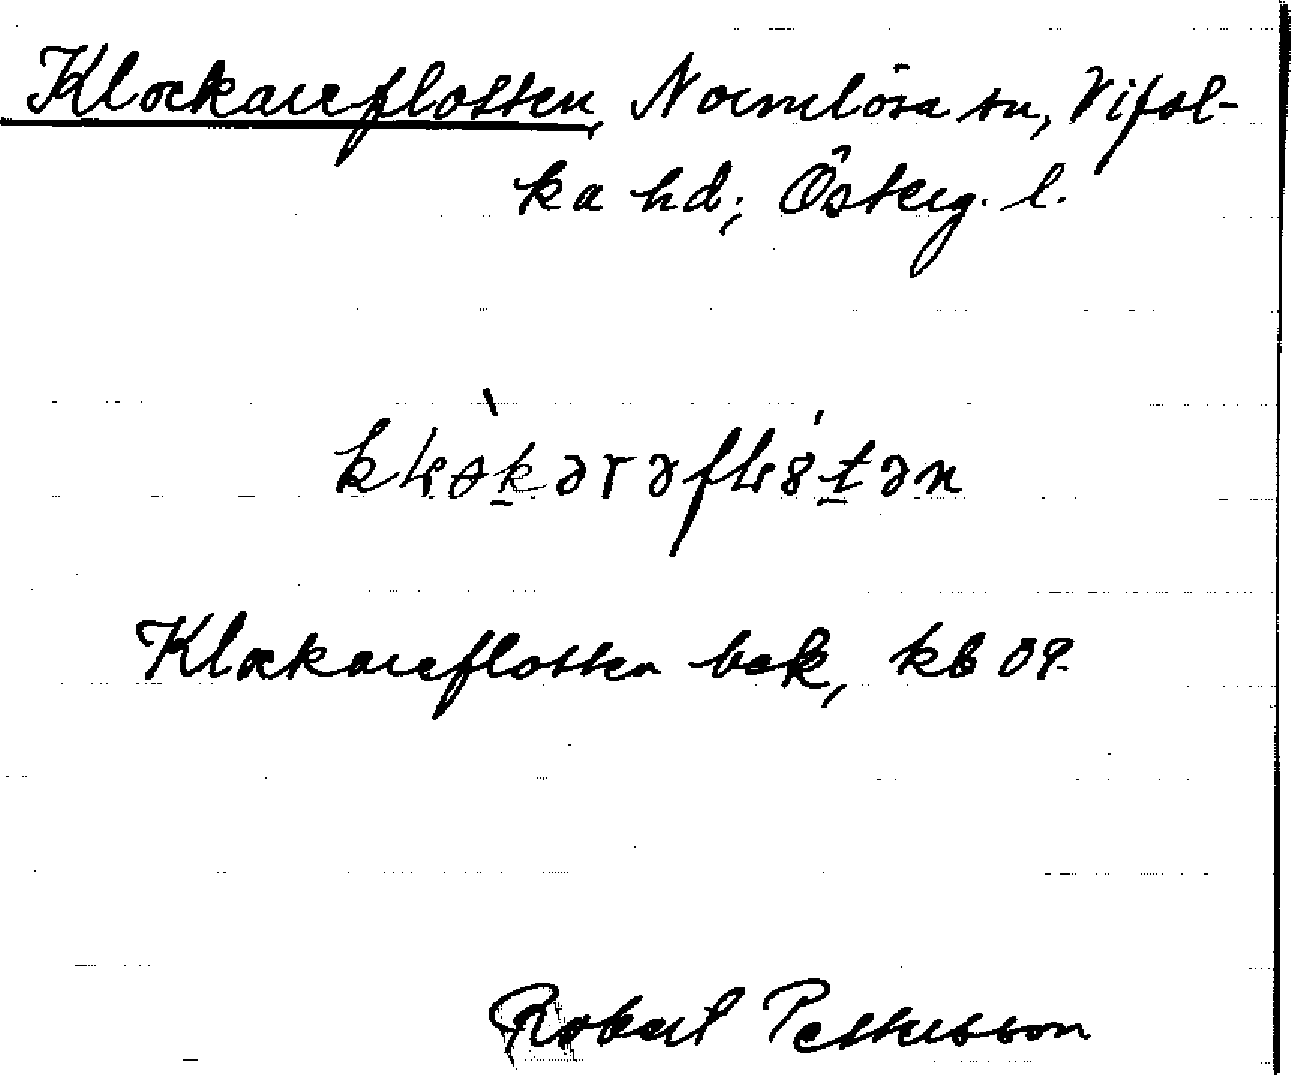 Klockareflotten, Normlösa sn, Vifol-
ka hd; Österg. l.
Klockareflotten bek, kb 09.
Robert Pettersson